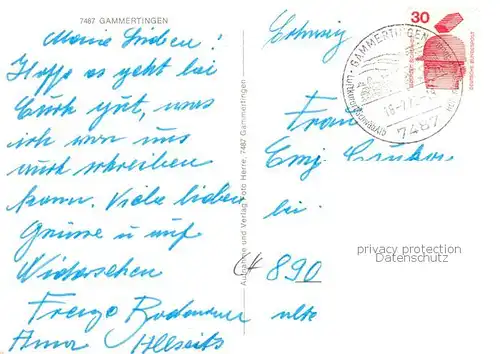 7487 GAMMERTINGEN
Meine Lieben!
Hoffe es geht bei
Euch gut, was
ich von uns
auch schreiben
kann. Viele lieben
Grüsse u auf
Widasehen
Frengo Bodamer
Anna Allseits
Aufnahme und Verlag Foto Herre, 7487 Gammertingen
GAMMERTINGEN
Luftkurort
7487
30
DEUTSCHE BUNDESPOST
Frau
bei
CH 890
privacy protection
Datenschutz